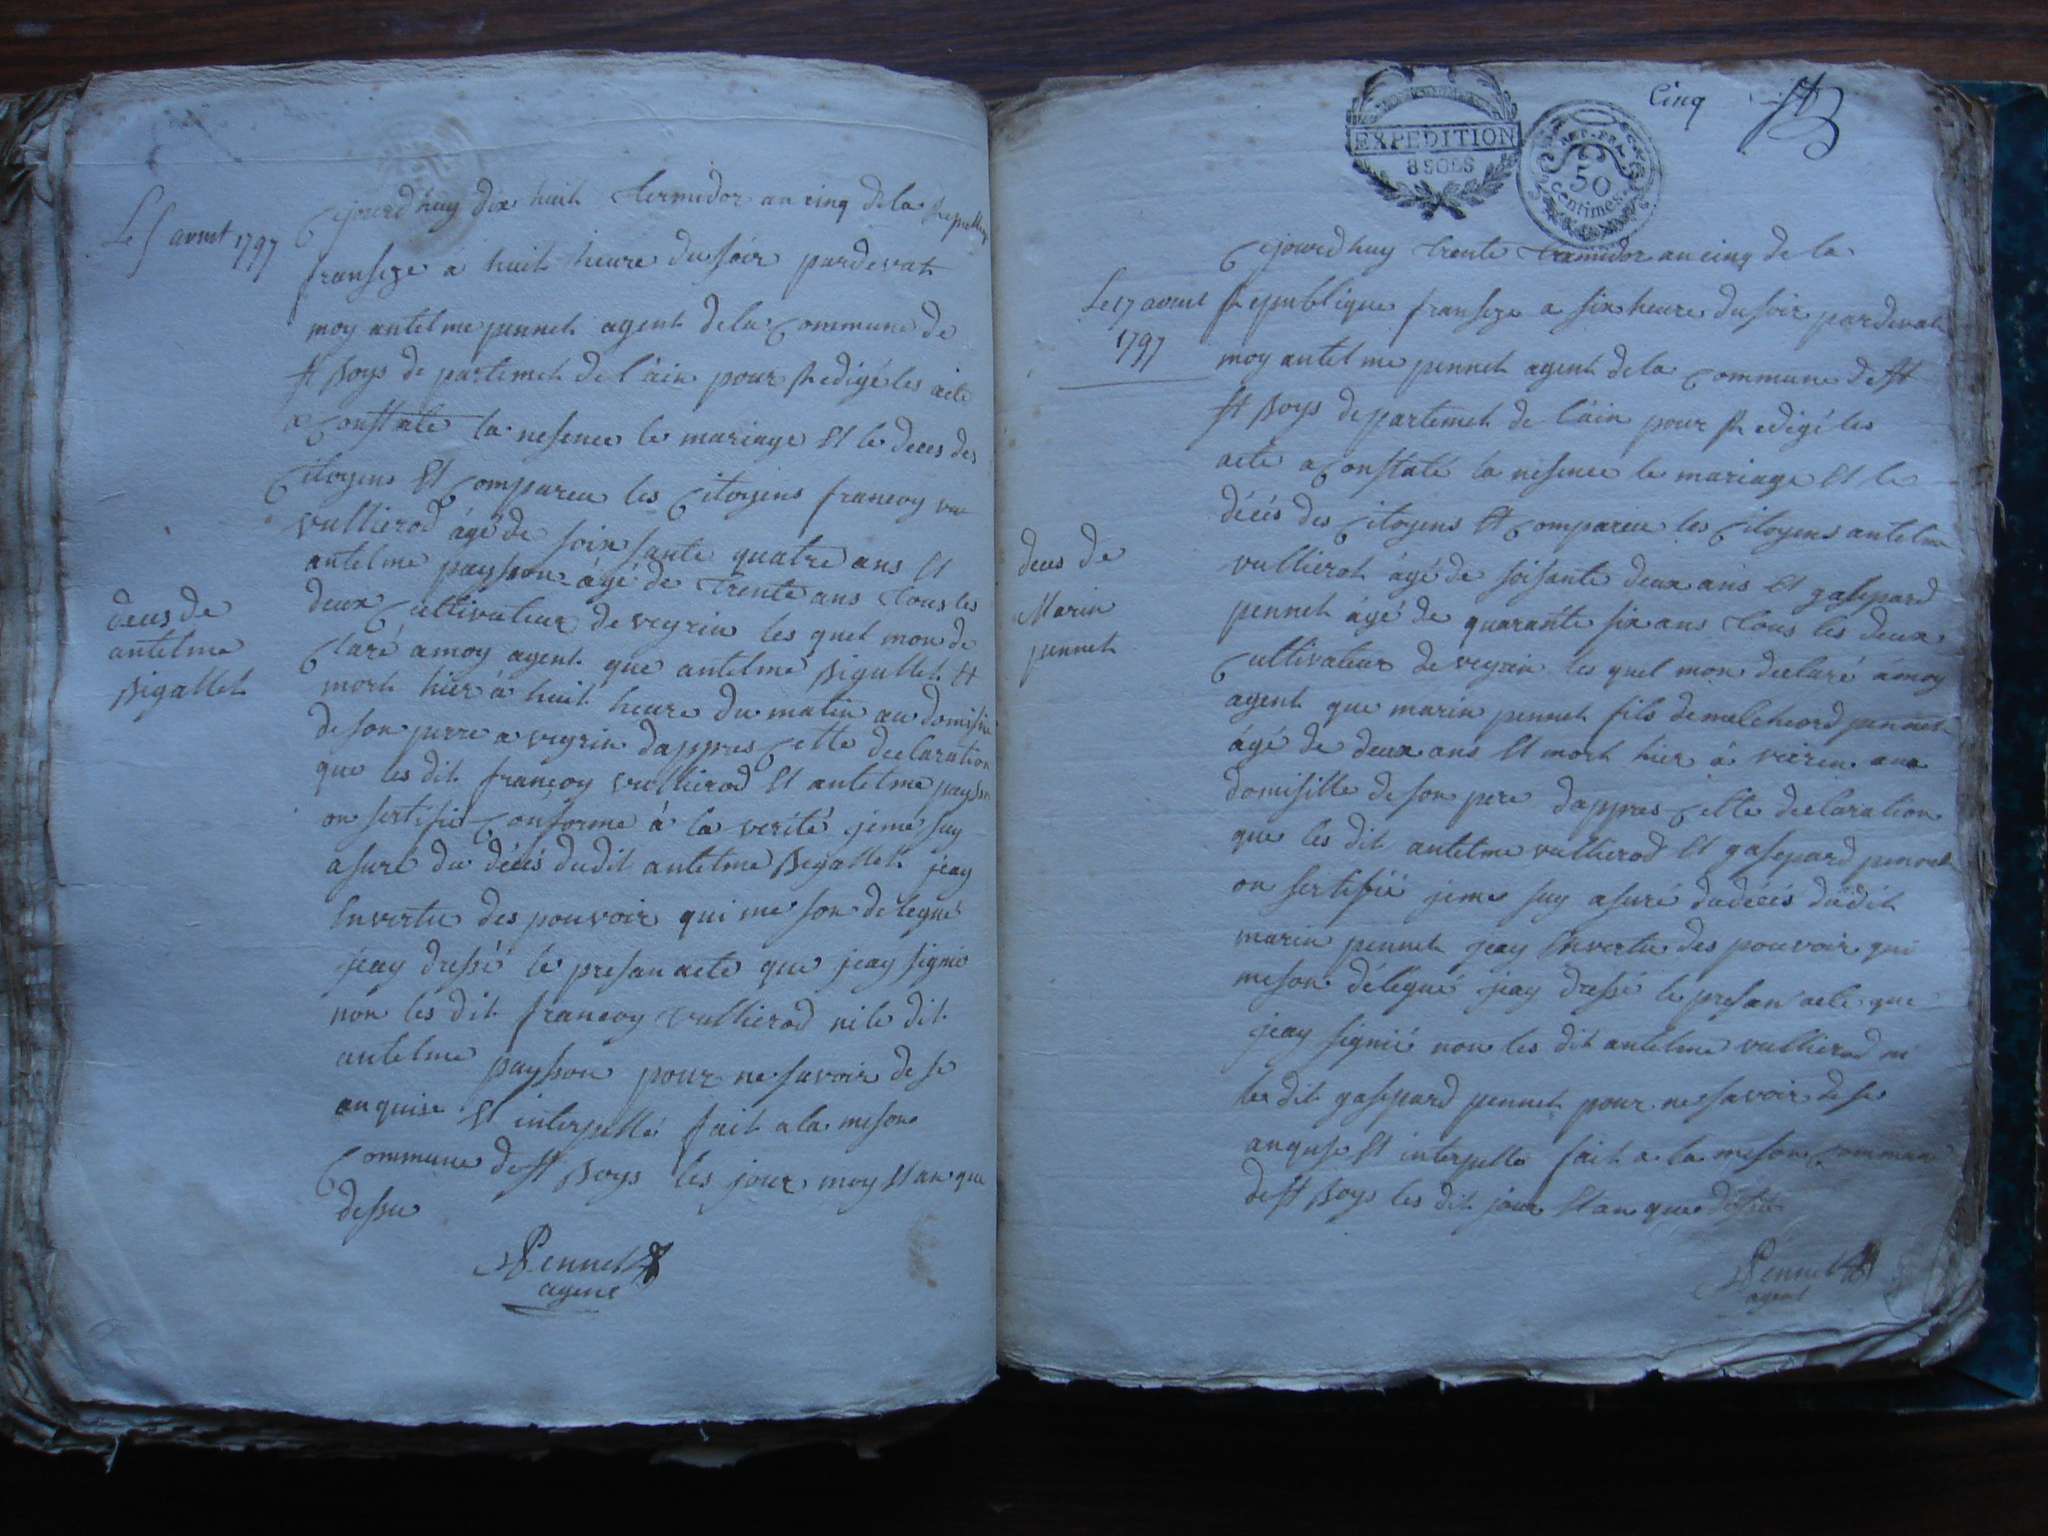 Le 5 avout 1797
Cejourdhuy dix huit termidor an cinq de la Republique
franseze a huit heure du soir pardevat
moy antelme pennet agent de la Commune de
St Boys de partemet de l'ain pour Redigé les acte
a Constate la nesence le mariage Et le deces des
Citoyens Et Compareu les Citoyens françoy vu
vullierod âgé de soixsante quatre ans Et
antelme paysson âgé de trente ans tous les
deux Cultivateur de veyrin les quel mon de
Claré a moy agent que antelme Bigallet Et
mort hier à huit heure du matin au domisile
de son perre a veyrin dappres Cette declaration
que les dit françoy vullierod Et antelme paysson
on sertifié Conforme à la verité jeme suy
asure du décés dudit antelme Bigallet jeay
Envertu des pouvoir qui me son delegué
jeay dressé le presan acte que jeay signé
non les dit françoy vullierod ni le dit
antelme paysson pour ne savoir de se
anquise Et interpellé fait a la meson
Commune de St Boys les jour moy Et an que
dessu
Pennet
agent
deces de
antelme
Bigallet
Cinq
EXPEDITION
8 SOLS
50
Centimes
Le 17 avout
1797
Cejourdhuy trente termidor an cinq de la
Republique franseze a six heure du soir pardevat
moy antelme pennet agent de la Commune de St
St Boys departemet de l'ain pour Redigé les
acte a Constaté la nesence le mariage Et le
décés des Citoyens Et Compareu les Citoyens antelme
vullierot âgé de soisante deux ans Et gaspard
pennet âgé de quarante six ans tous les deux
Cultivateur de veyrin les quel mon declaré a moy
agent que marin pennet fils de melcheord pennet
âgé de deux ans Et mort hier à veirin aux
domisille de son pere dappres Cette declaration
que les dit antelme vullierod Et gaspard pennet
on sertifié jeme suy asuré du décés dudit
marin pennet jeay Envertu des pouvoir qui
me son délégué jeay dressé le presan acte que
jeay signié non les dit antelme vullierod ni
le dit gaspard pennet pour ne savoir de se
anquise Et interpelle fait a la meson Commun
de St Boys les dit jour Et an que dessu
Pennet
agent
deces de
Marin
pennet